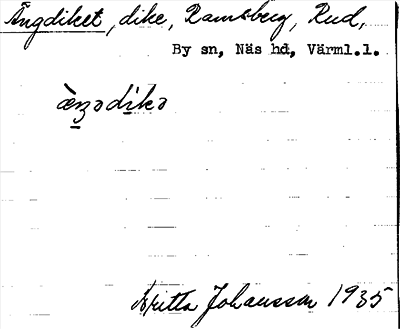 Ängdiket, dike, Ramsberg, Rud,
By sn, Näs hd, Värml.l.
Britta Johansson 1935